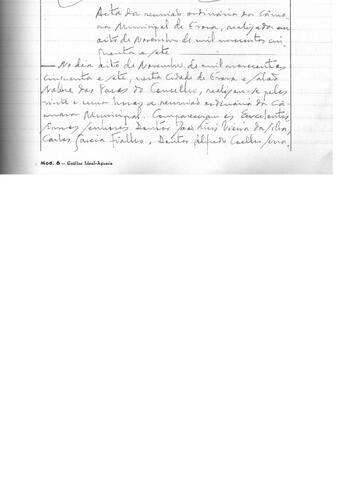 Acta da reunião ordinária da Câma-
ra Municipal de Évora, realizada em
oito de Novembro de mil novecentos cin-
quenta e sete
— No dia oito de Novembro de mil novecentos
cincoenta e sete, nesta Cidade de Évora e
Nobre dos Paços do Concelho, realizou-se pelas
vinte e uma horas a reunião ordinária da Câ-
mara Municipal. Compareceram os Excelentes
senhores Doutor José Luís Vieira da Silva,
Carlos Garcia Fialho, Doutor Alfredo Coelho
Mod. 6 — Gráfica Ideal-Agueda